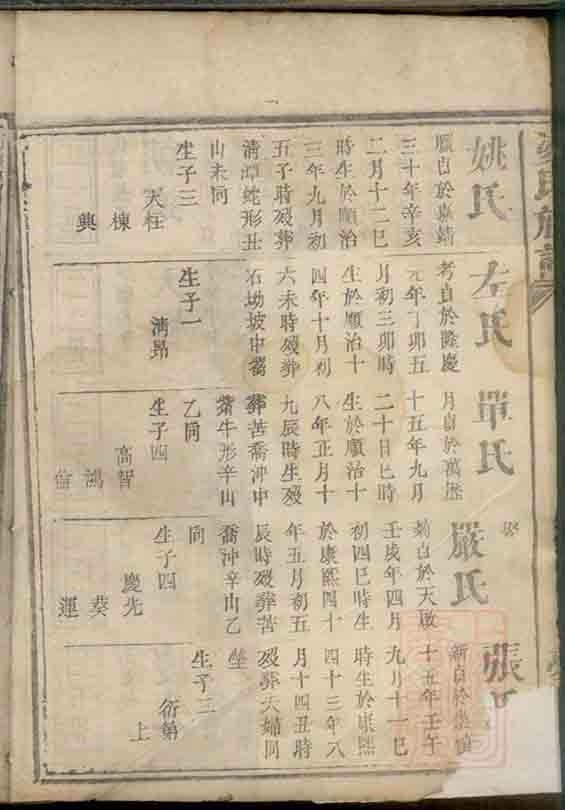 姚氏
三十年辛亥
二月十二巳
時生於順治
三年九月初
五子時殁葬
清潭蛇形丑
山未同
生子三
天柱
棟
興
左氏
考自於隆慶
元年丁卯五
月初三卯時
生於順治十
四年十月初
六未時殁葬
石坳坡中
生子一
清昂
單氏
月自於萬歷
十五年九月
二十日巳時
生於順治十
八年正月十
九辰時生殁
葬苦喬沖中
牛形辛山
乙同
生子四
高智
鴻
嚴氏
自於天啟
壬戌年四月
初四巳時生
於康熙四十
年五月初五
辰時殁葬苦
喬沖辛山乙
同
生子四
慶先
葵
運
張
十五年壬午
九月十一巳
時生於康熙
四十三年八
月十四丑時
殁葬夫婦同
生子三
衍弟
上